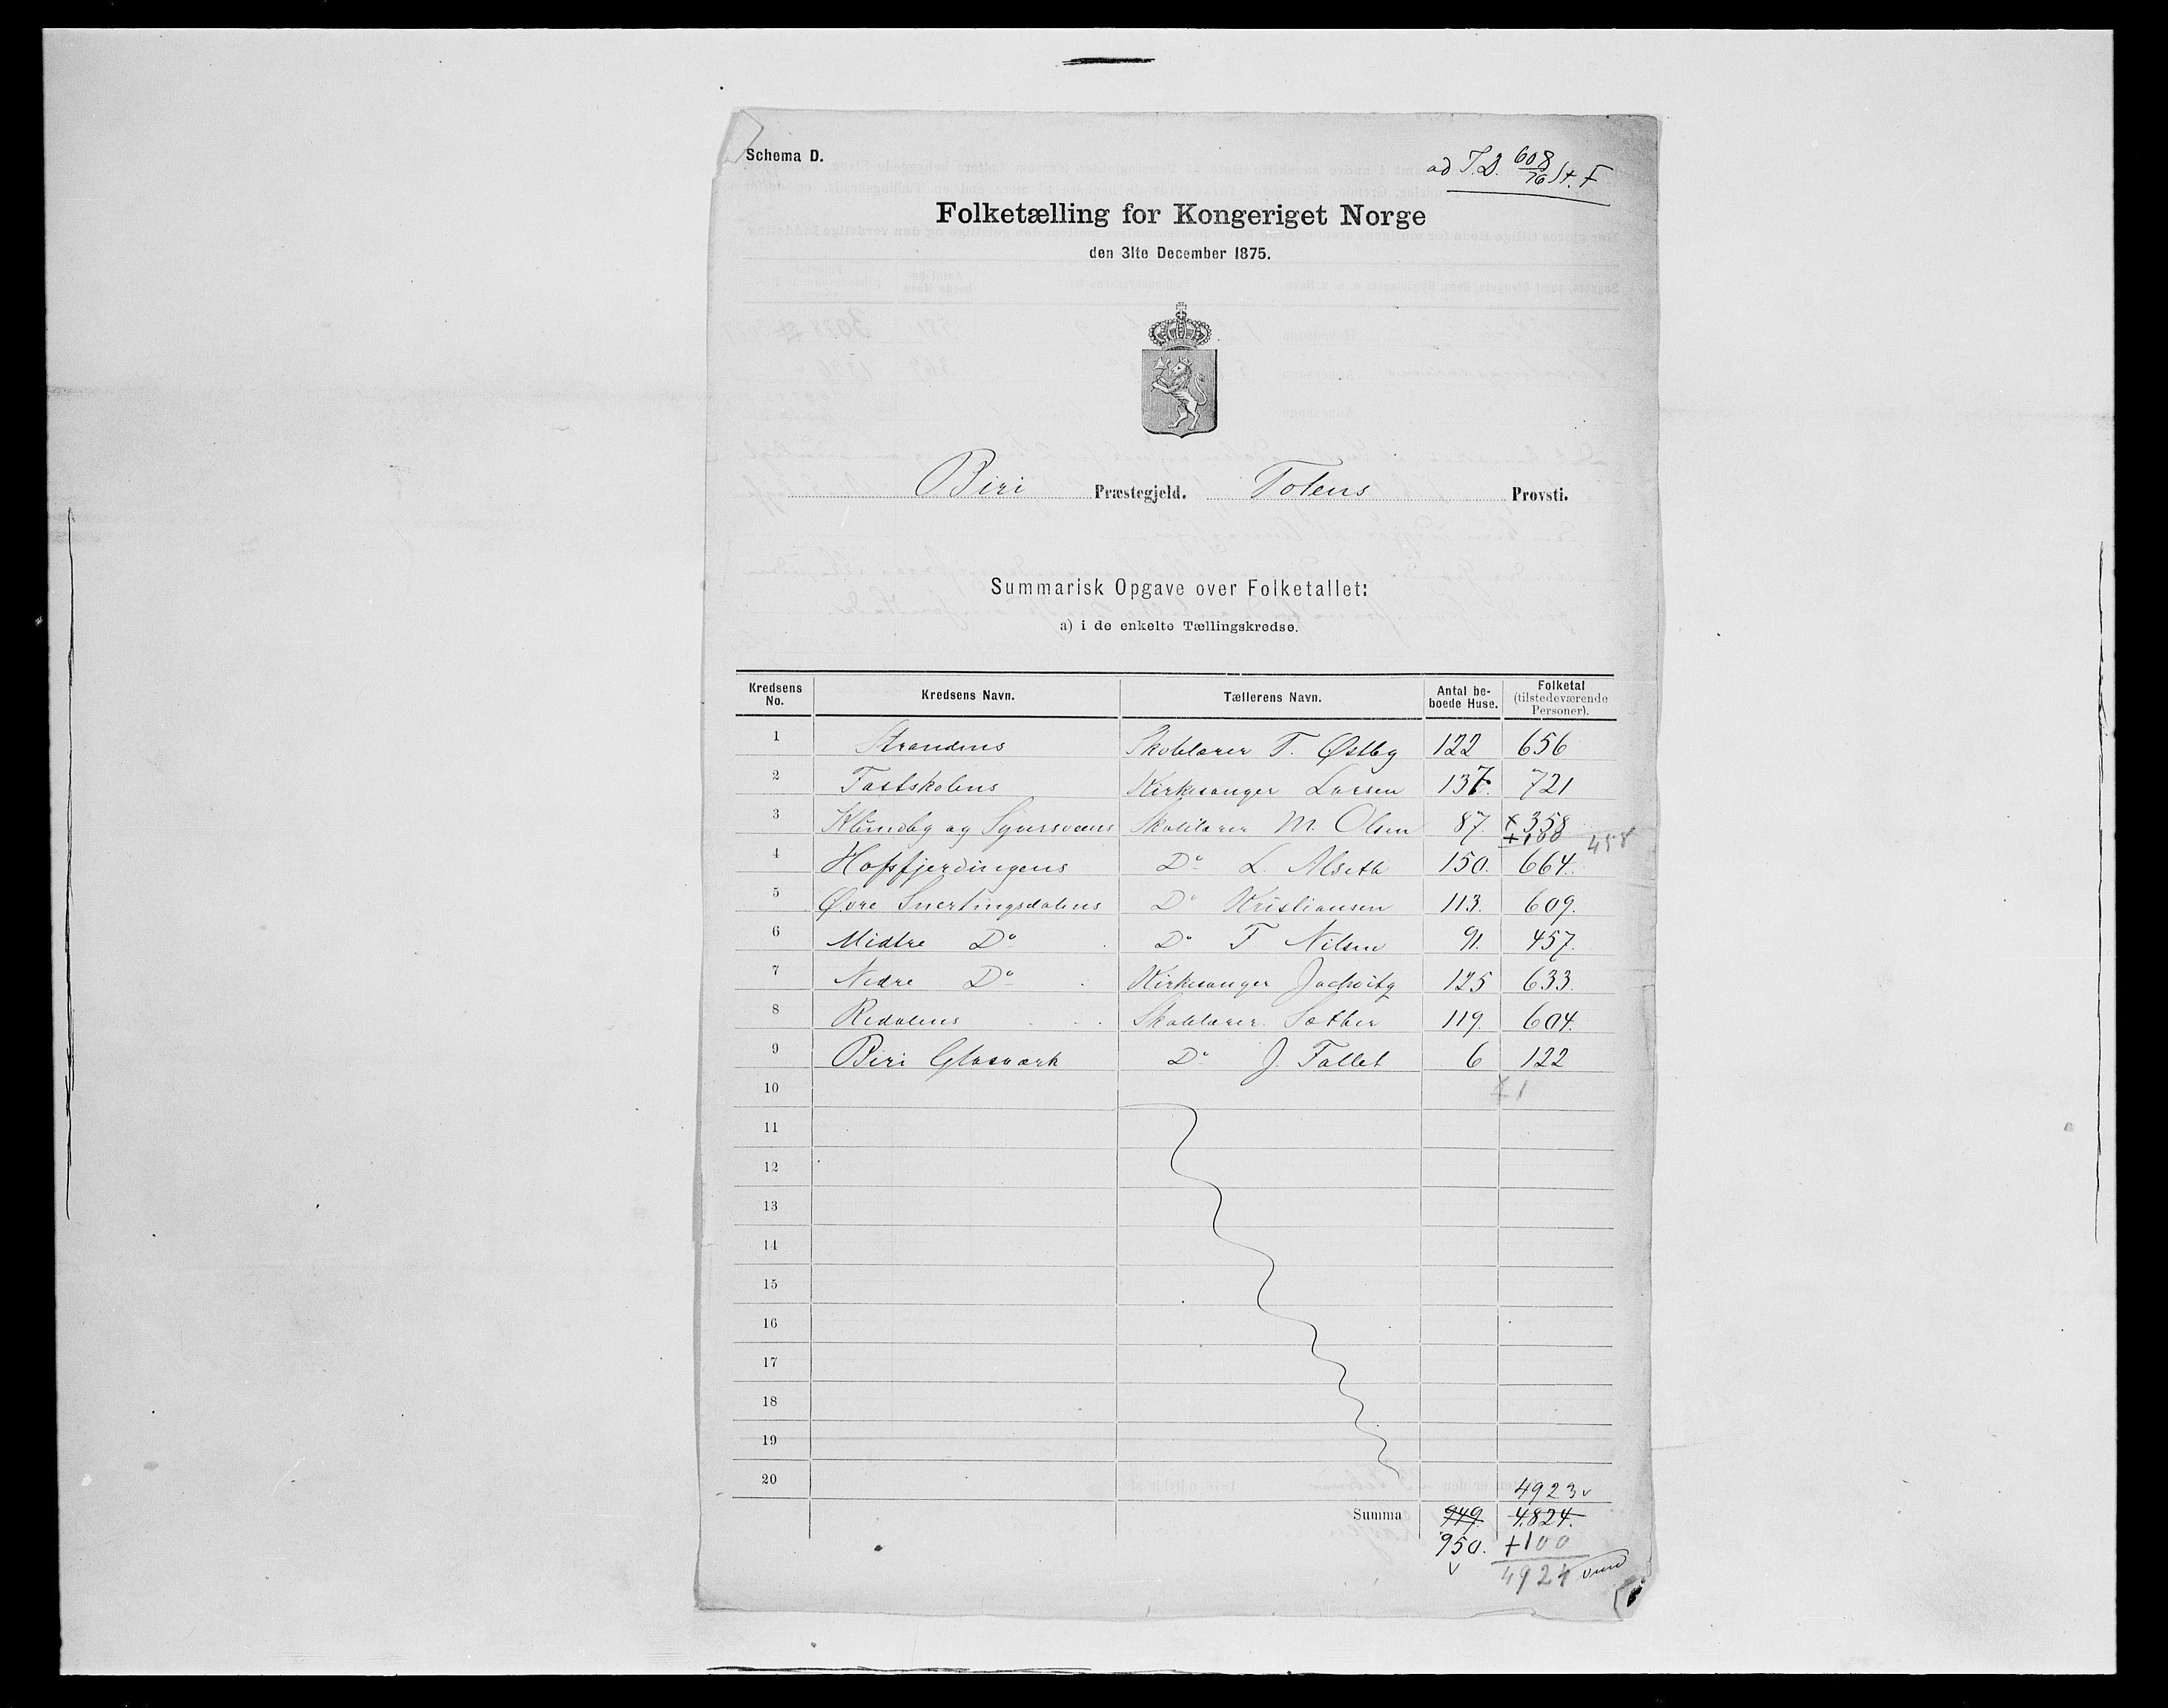 Schema D.
ad T.D. 608/76 St. F
Folketælling for Kongeriget Norge
den 31te December 1875.
Biri Præstegjeld. Totens Provsti.
Summarisk Opgave over Folketallet:
a) i de enkelte Tællingskredse.
Kredsens No. Kredsens Navn. Tællerens Navn. Antal beboede Huse. Folketal (tilstedeværende Personer).
1 Strandens Skolelærer T. Østby 122 656
2 Fastskolens Kirkesanger Larsen 137. 721
3 Klundby og Syversveens Skolelærer M. Olsen 87. × 358 +100 458
4 Hofsfjerdingens Do L. Alseth 150. 664.
5 Øvre Snertingsdalens Do Kristiansen 113. 609.
6 Midtre Do Do F Nilsen 91. 457.
7 Nedre Do Kirkesanger 125 633.
8 Redalens Skolelærer Sæther 119. 604.
9 Biri Glasværk Do J. Fallet 6 122
10 1
11
12
13
14
15
16
17
18
19
20 4923 v
Summa 949. 4824.
950. +100
v 4924